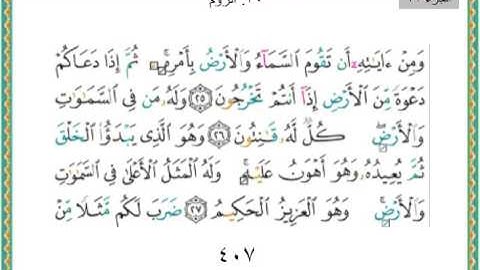 وَمِنْ ءَايَـٰتِهِۦٓ أَن تَقُومَ السَّمَآءُ وَالْأَرْضُ بِأَمْرِهِۦ ۚ ثُمَّ إِذَا دَعَاكُمْ
دَعْوَةً مِّنَ الْأَرْضِ إِذَآ أَنتُمْ تَخْرُجُونَ ٢٥ وَلَهُۥ مَن فِى السَّمَـٰوَٰتِ
وَالْأَرْضِ ۖ كُلٌّ لَّهُۥ قَـٰنِتُونَ ٢٦ وَهُوَ الَّذِى يَبْدَؤُا الْخَلْقَ
ثُمَّ يُعِيدُهُۥ وَهُوَ أَهْوَنُ عَلَيْهِ ۚ وَلَهُ الْمَثَلُ الْأَعْلَىٰ فِى السَّمَـٰوَٰتِ
وَالْأَرْضِ ۚ وَهُوَ الْعَزِيزُ الْحَكِيمُ ٢٧ ضَرَبَ لَكُم مَّثَلًا مِّنْ
٤٠٧